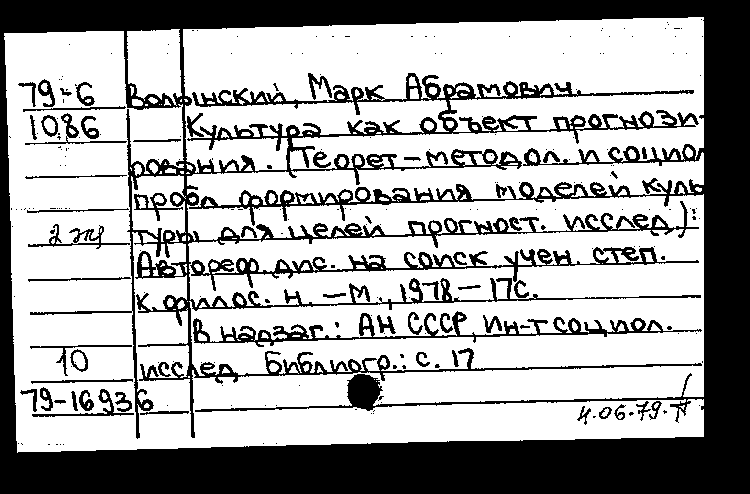 79-6 Волынский, Марк Абрамович.
1086 Культура как объект прогнози-
рования. (Теорет-методол. и социол
пробл формирования моделей куль
2 экз туры для целей прогност. исслед.):
Автореф. дис. на соиск учен. степ.
к. филос. н. — М., 1978. — 17с.
В надзаг.: АН СССР, Ин-т социол.
10 исслед Библиогр.: с. 17
79-16936
4.06.79.